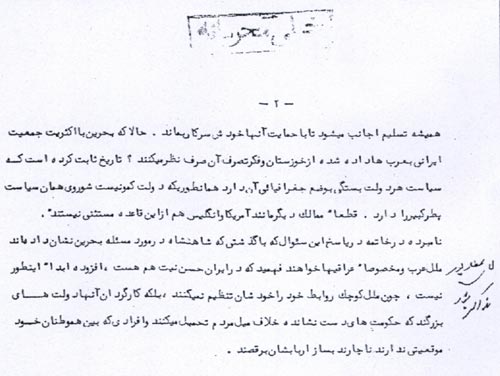 خیلی محرمانه
- ۲ -
همیشه تسلیم اجانب میشود تا با حمایت آنها خودش سرکار بماند . حالا که بحرین با اکثریت جمعیت
ایرانی بعرب ها داده شده از خوزستان و فکر تصرف آن صرف نظر میکنند ؟ تاریخ ثابت کرده است که
سیاست هر دولت بستگی بوضع جغرافیائی آن دارد همانطوریکه دولت کمونیست شوروی همان سیاست
پطر کبیر را دارد . قطعا" ممالک دیگر مانند آمریکا و انگلیس هم از این قاعده مستثنی نیستند" .
نامبرده در خاتمه در پاسخ این سئوال که باگذشتی که شاهنشاه در مورد مسئله بحرین نشان داده اند
ملل عرب و مخصوصا" عراقیها خواهند فهمید که در ایران حسن نیت هم هست ، افزوده ابدا" اینطور
نیست ، چون ملل کوچک روابط خود را خودشان تنظیم نمیکنند ، بلکه کارگردان آنها دولت های
بزرگند که حکومت های دست نشانده خلاف میل مردم تحمیل میکنند و افرادی که بین هموطنان خود
موقعیتی ندارند ناچارند بساز اربابشان برقصند .